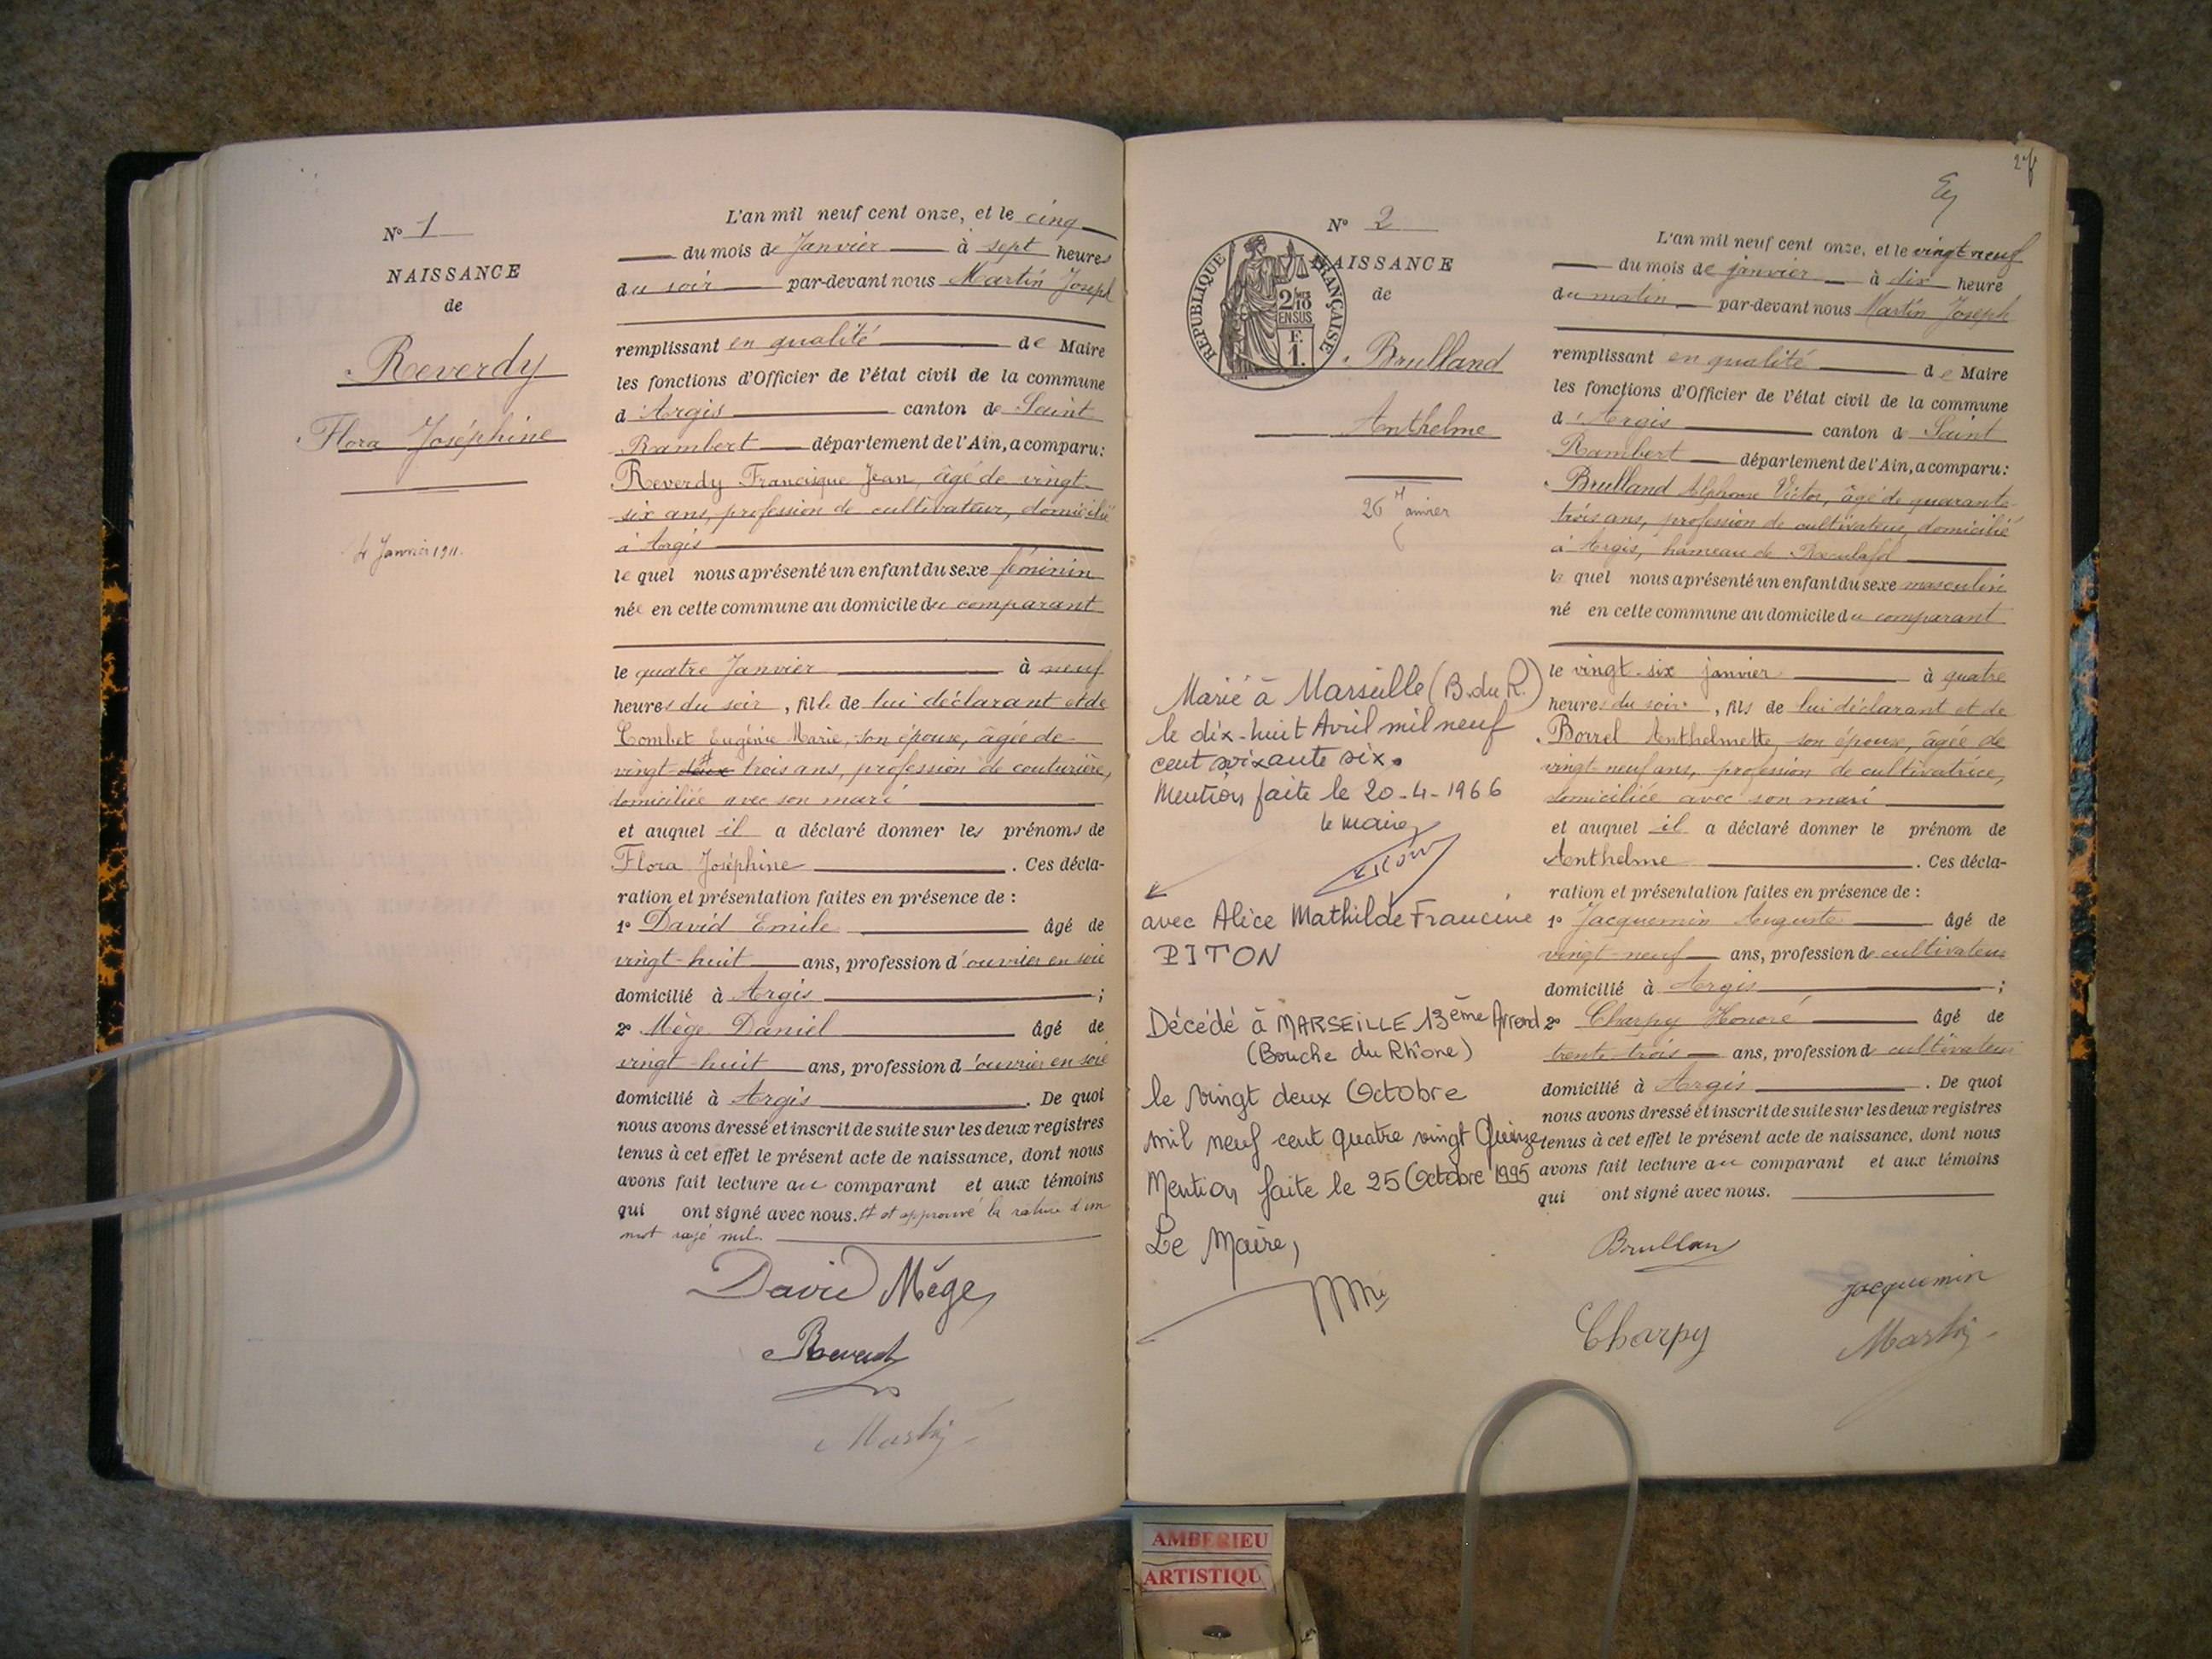 N° 1
NAISSANCE
de
Reverdy
Flora Joséphine
4 Janvier 1911.
L'an mil neuf cent onze, et le cinq
du mois de Janvier à sept heures
du soir par-devant nous Martin Joseph
remplissant en qualité de Maire
les fonctions d'Officier de l'état civil de la commune
d'Argis canton de Saint
Rambert département de l'Ain, a comparu:
Reverdy Francisque Jean, âgé de vingt-
six ans, profession de cultivateur, domicilié
à Argis
lequel nous a présenté un enfant du sexe féminin
née en cette commune au domicile du comparant
le quatre Janvier à neuf
heures du soir, fille de lui déclarant et de
Combet Eugénie Marie, son épouse, âgée de
vingt-deux trois ans, profession de couturière,
domiciliée avec son mari
et auquel il a déclaré donner les prénoms de
Flora Joséphine. Ces décla-
ration et présentation faites en présence de :
1° David Emile âgé de
vingt-huit ans, profession d'ouvrier en soie
domicilié à Argis ;
2° Mège Daniel âgé de
vingt-huit ans, profession d'ouvrier en soie
domicilié à Argis. De quoi
nous avons dressé et inscrit de suite sur les deux registres
tenus à cet effet le présent acte de naissance, dont nous
avons fait lecture au comparant et aux témoins
qui ont signé avec nous. et approuvé la rature d'un
mot rayé nul.
David Mège
Reverdy
Martin
27
N° 2
REPUBLIQUE FRANÇAISE
2/10 EN SUS
F. 1.
NAISSANCE
de
Brulland
Anthelme
26 Janvier
Marié à Marseille (B. du R.)
le dix-huit Avril mil neuf
cent soixante six.
Mention faite le 20-4-1966
le Maire
avec Alice Mathilde Francine
PITON
Décédé à MARSEILLE 13ème Arrond
(Bouche du Rhône)
le vingt deux Octobre
mil neuf cent quatre vingt Quinze
Mention faite le 25 Octobre 1995
Le Maire,
L'an mil neuf cent onze, et le vingt neuf
du mois de janvier à dix heure
du matin par-devant nous Martin Joseph
remplissant en qualité de Maire
les fonctions d'Officier de l'état civil de la commune
d'Argis canton de Saint
Rambert département de l'Ain, a comparu:
Brulland Alphonse Victor, âgé de quarante-
trois ans, profession de cultivateur, domicilié
à Argis, hameau de Reculafol
lequel nous a présenté un enfant du sexe masculin
né en cette commune au domicile du comparant
le vingt-six janvier à quatre
heures du soir, fils de lui déclarant et de
Borrel Anthelmette, son épouse, âgée de
vingt-neuf ans, profession de cultivatrice,
domiciliée avec son mari
et auquel il a déclaré donner le prénom de
Anthelme. Ces décla-
ration et présentation faites en présence de :
1° Jacquemin Auguste âgé de
vingt-neuf ans, profession de cultivateur
domicilié à Argis ;
2° Charpy Honoré âgé de
trente-trois ans, profession de cultivateur
domicilié à Argis. De quoi
nous avons dressé et inscrit de suite sur les deux registres
tenus à cet effet le présent acte de naissance, dont nous
avons fait lecture au comparant et aux témoins
qui ont signé avec nous.
Brulland
Jacquemin
Charpy
Martin
AMBERIEU
ARTISTIQU